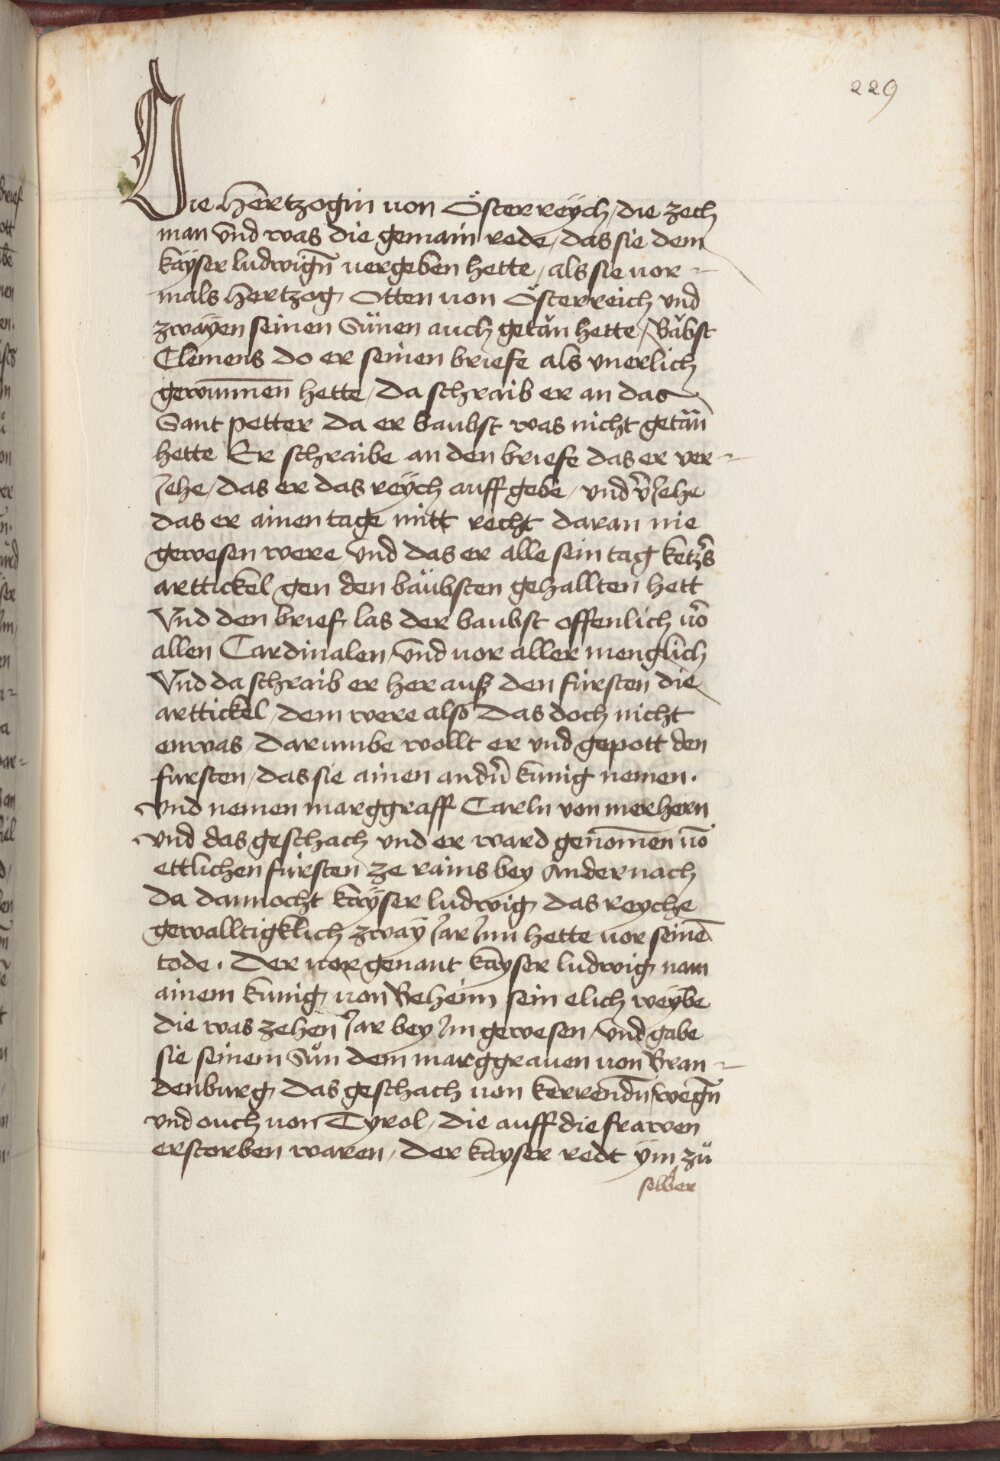 229
Die Hertzogin von Österreÿch / die zech
man vnd was die gemain rede / das sie dem
kaÿser ludwign̄ vergeben hette / als sie vor-
mals Hertzog Otten von Österreich vnd
zwaÿen seinen Sünen auch getän hette / Bäbst
Clemens do er seinen briefe als vnerlich
gewūnnen hette / da schraib er an das
Sant petter da er baubst was nicht getän
hette Er schraibe an den briefe das er ver-
Jehe / das er das reÿch auff gebe / vnd v̄Jehe
das er ainen tage mitt recht daran nie
gewesen were vnd das er alle sein tag ketz̄s
arttickel gen den bäubsten gehallten hett
Vnd den brief las der baubst offenlich vō
allen Cardinalen / vnd vor aller menglich
Vnd da schraib er her auß den fürsten die
arttickel / dem were also das doch nicht
enwas / darumbe wollt er vnd gepott den
fursten / das sie ainen andn̄ kunig nemen .
vnd nemen marggraff Carln von merhern
vnd das geschach vnd er ward genōmen vō
ettlichen fürsten ze rains bey Andernach
da dannocht kaÿser ludwig das reyche
gewalltigklich zwaÿ Jar Jnn hette vor seinē
tode . Der vorgenant kayser ludwig nam
ainem kunig von Beheim sein elich weÿbe
die was zehen Jar bey Jm gewesen / vnd gabe
sie seinem Sün dem marggrauen von Bran-
denburg das geschach von kerrendn̄ wegn̄
vnd ouch von Tyrol / die auff die frawen
erstorben waren / der kayser redt ÿm zů
selber